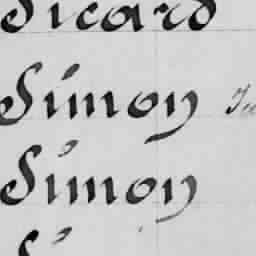 Sicard
Simon
Simon